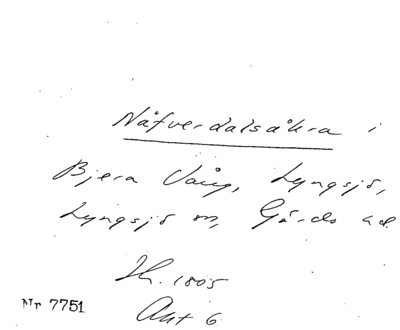 Näfverdalsåkra i
Bjera Vång, Lyngsjö,
Lyngsjö sn, Gärds hd.
Sk. 1805
Akt 6
Nr 7751